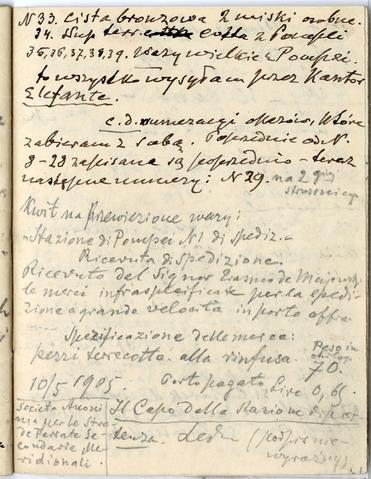 N 33. Cista bronzowa 2 miski osobne.
34. Słup terra cotta z Pompei
35, 36, 37, 38, 39. Wazy wielkie z Pompei.
to wszystko wysyłam przez Kantor
Elefante.
c.d. numeracyi okazów, które
zabieram z sobą. Poprzednie od N.
8-28 zapisane są poprzednio - teraz
następne numery: N 29. na 2giej
stronnicy
Kwit na przewiezione wazy:
"Stazione di Pompei N 1 di Spediz.-
Ricevuta di Spedizione.
Ricevuto del Signor Erasmo de Majewski
le merci infraspecificate per la spedi-
zione a grande velocità in porto affra-
Spezificazione delle merce:
pezzi terrecotta alla rinfusa. Peso in
chilog.
70.
10/5 1905. Porto pagato Lire 0,65.
Società Anoni
ma per le Stra
de Ferrate Se-
condarie Me-
ridionali.
Il Capo della Stazione di par
tenza. (podpis nie-
wyraźny)